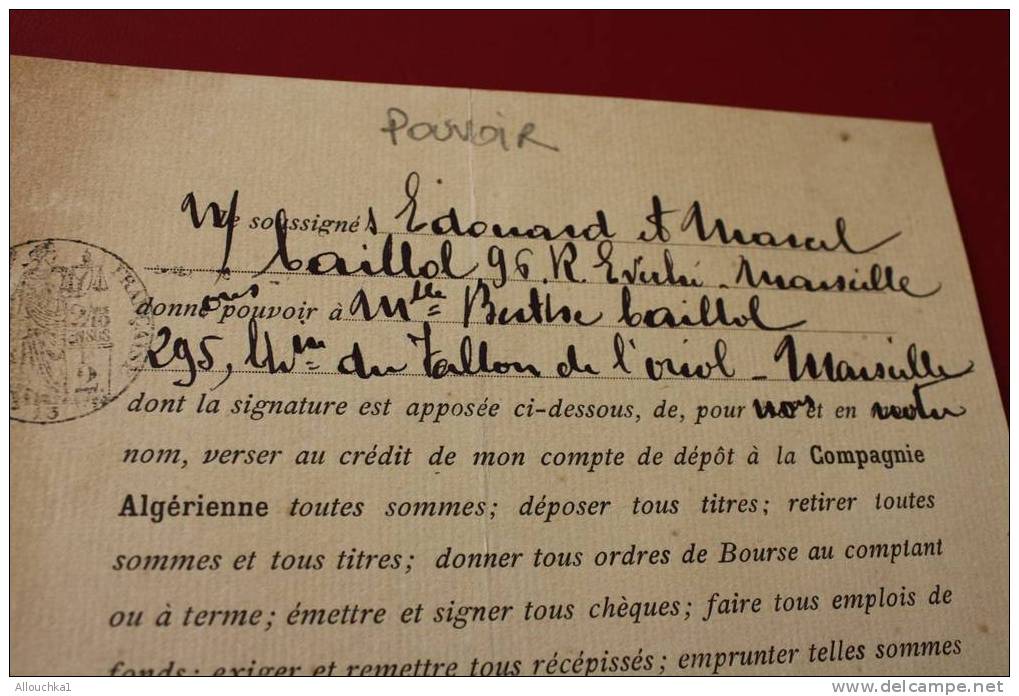 Pouvoir
N/ soussignés Edouard et Marcel
Caillol 96 R. Evêché - Marseille
donnons pouvoir à Mlle Berthe Caillol
295, du Vallon de l'oriol - Marseille
dont la signature est apposée ci-dessous, de, pour nous et en notre
nom, verser au crédit de mon compte de dépôt à la Compagnie
Algérienne toutes sommes; déposer tous titres; retirer toutes
sommes et tous titres; donner tous ordres de Bourse au comptant
ou à terme; émettre et signer tous chèques; faire tous emplois de
fonds; exiger et remettre tous récépissés; emprunter telles sommes
Allouchka1
delcampe.net